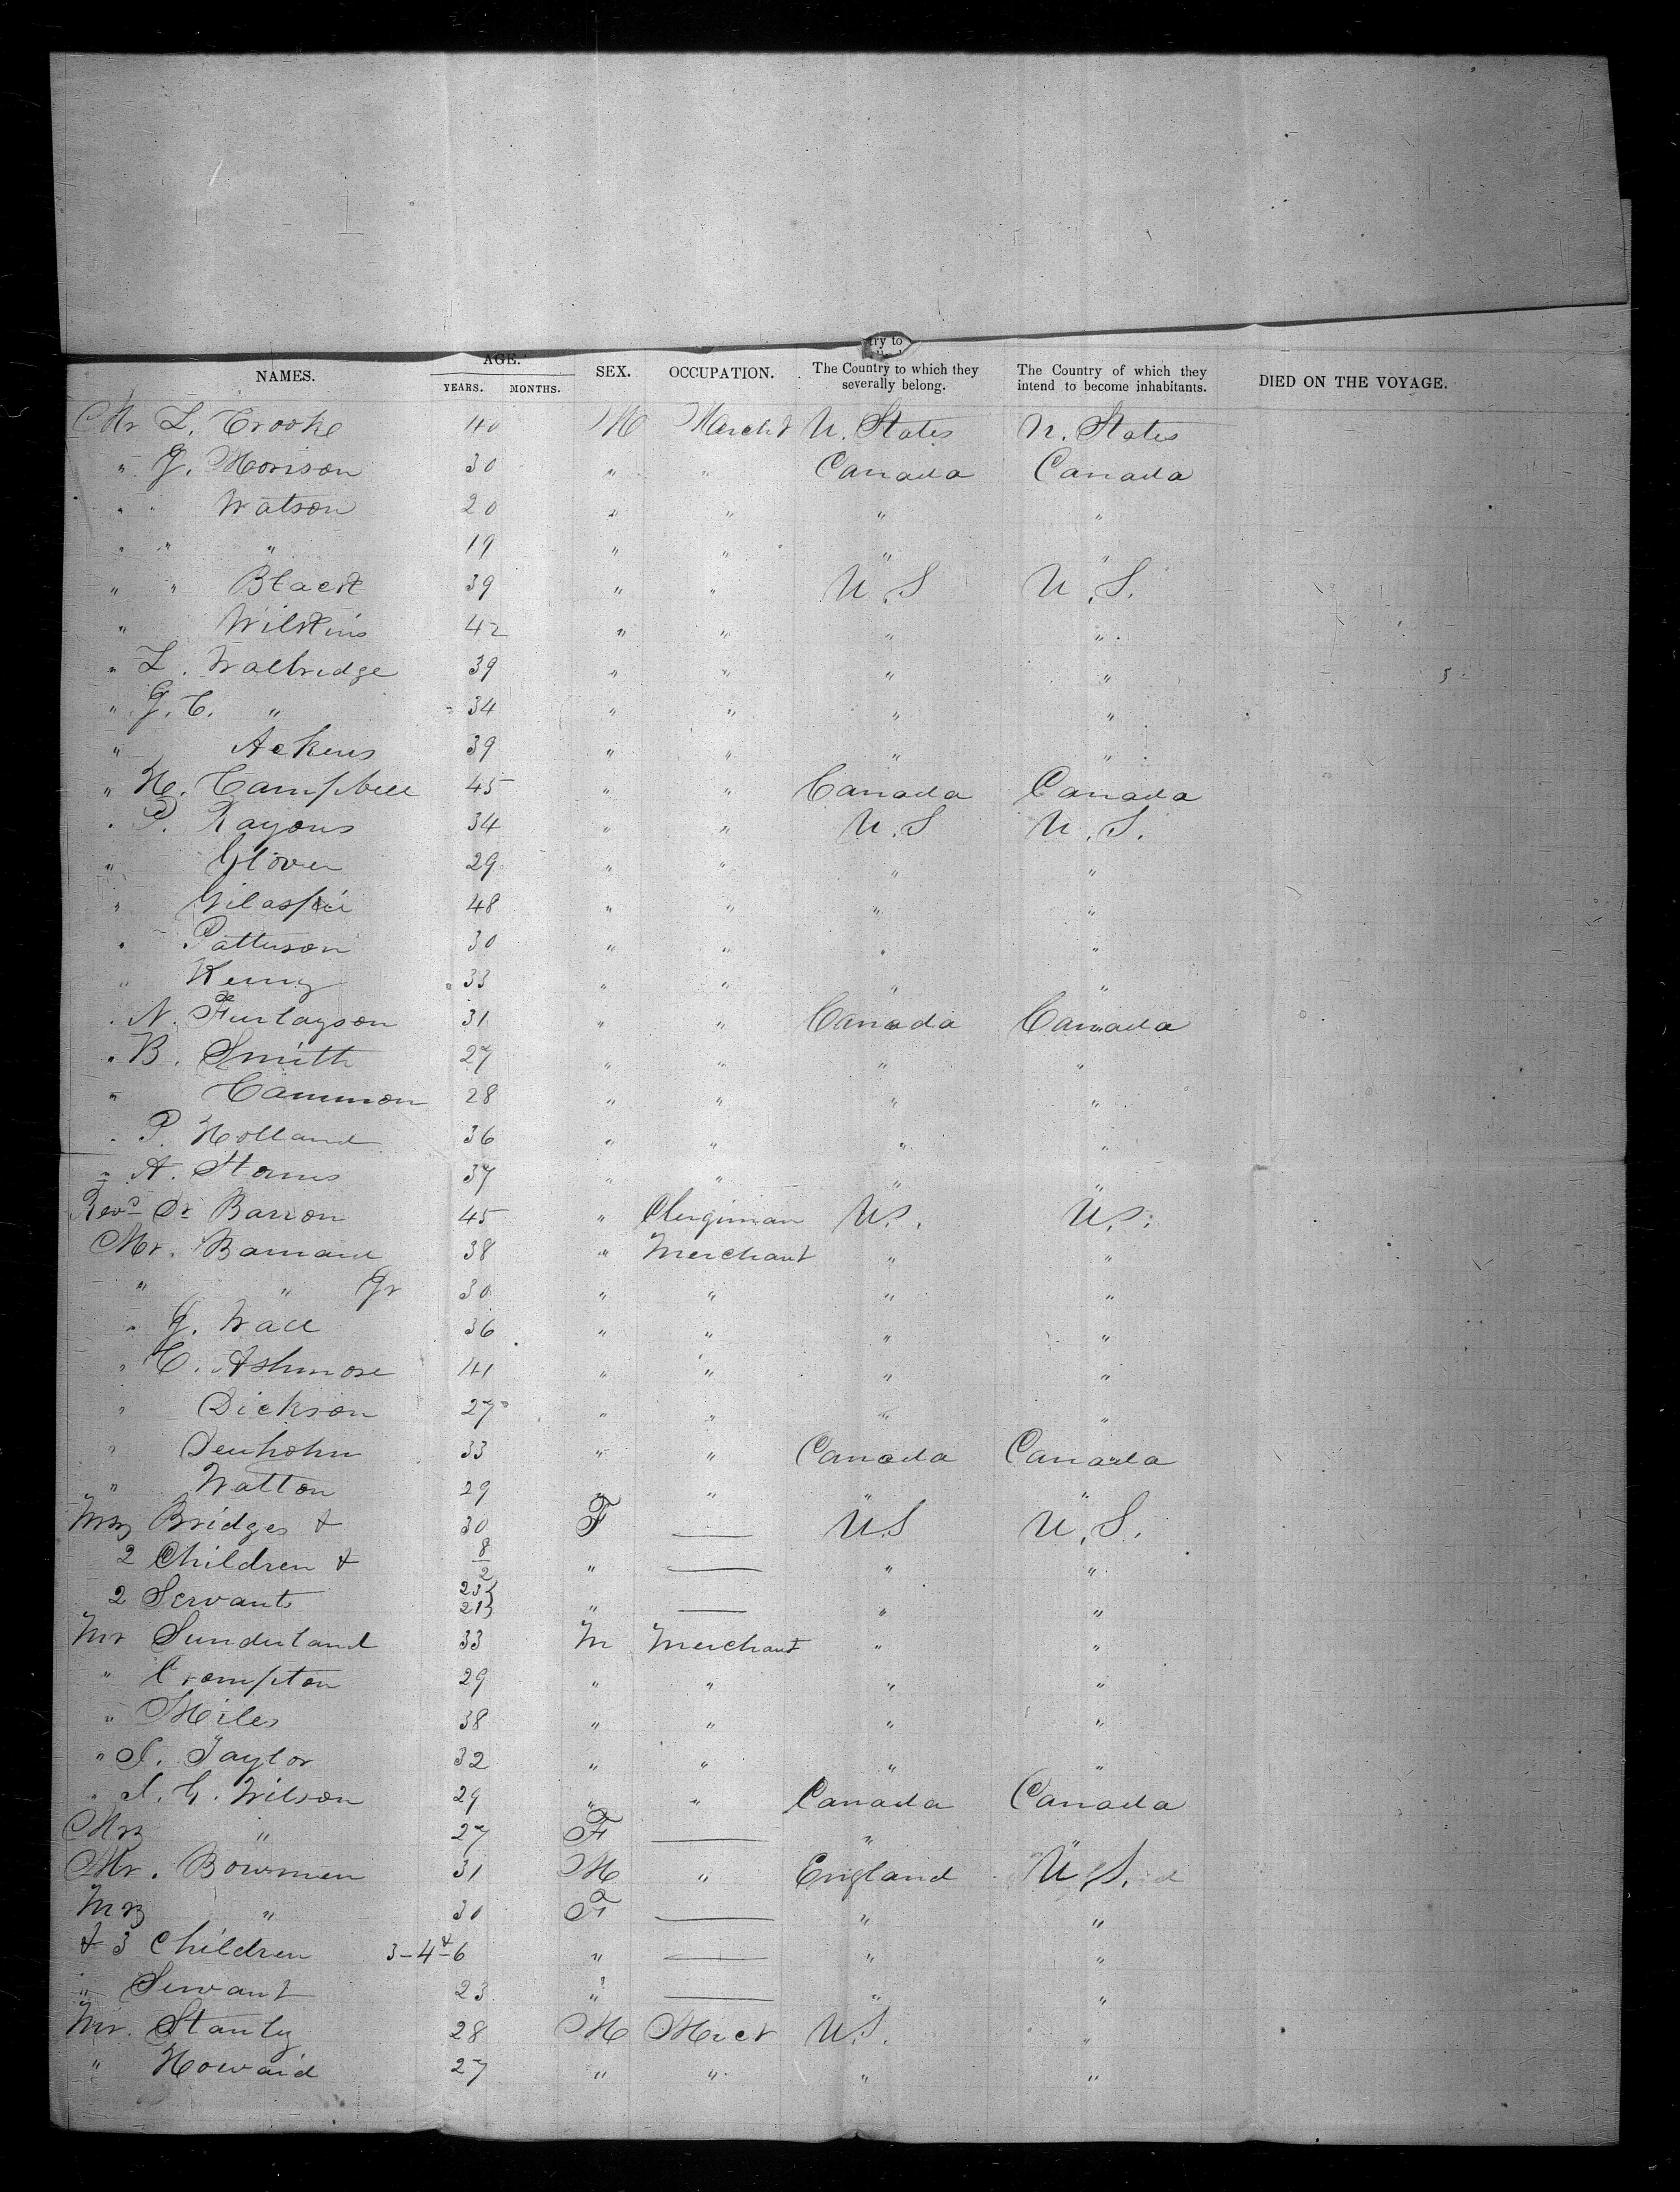 try to
AGE.
NAMES. YEARS. MONTHS. SEX. OCCUPATION. The Country to which they severally belong. The Country of which they intend to become inhabitants. DIED ON THE VOYAGE.
Mr L. Crooke 40 M Marcht U. States U. States
" J. Morison 30 " " Canada Canada
" " Watson 20 " " " "
" " " 19 " " " "
" " Black 39 " " U.S U.S.
" Wilkins 42 " " " "
" L. Walbridge 39 " " " "
" G. C. " 34 " " " "
" Ackens 39 " " " "
" H. Campbell 45 " " Canada Canada
" P. Rayons 34 " " U.S U.S.
" Glover 29 " " " "
" Gilaspie 48 " " " "
" Patterson 30 " " " "
" Kenny 33 " " " "
" N. Finlayson 31 " " Canada Canada
" B. Smith 27 " " " "
" Cammon 28 " " " "
" P. Holland 36 " " " "
" A. Storms 37 " " " "
Revd Dr Barron 45 " Clergiman U.S. U.S.
Mr. Barnard 38 " Merchant " "
" " Jr 30 " " " "
" J. Wall 36 " " " "
" C. Ashmore 41 " " " "
" Dickson 27 " " " "
" Denholm 33 " " Canada Canada
" Watton 29 " " " "
Mrs Bridges & 30 F — U.S U.S.
2 Children & 8/2 " — " "
2 Servants 23 21 " — " "
Mr Sunderland 33 M Merchant " "
" Crompton 29 " " " "
" Miles 38 " " " "
" J. Taylor 32 " " " "
" J. G. Wilson 29 " " Canada Canada
Mrs " 27 F — " "
Mr. Bowmen 31 M " England U.S.
Mrs " 30 F — " "
& 3 Children 3-4-&6 " — " "
" Servant 23 " — " "
Mr. Stanly 28 M Merct U.S. "
" Howard 27 " " " "